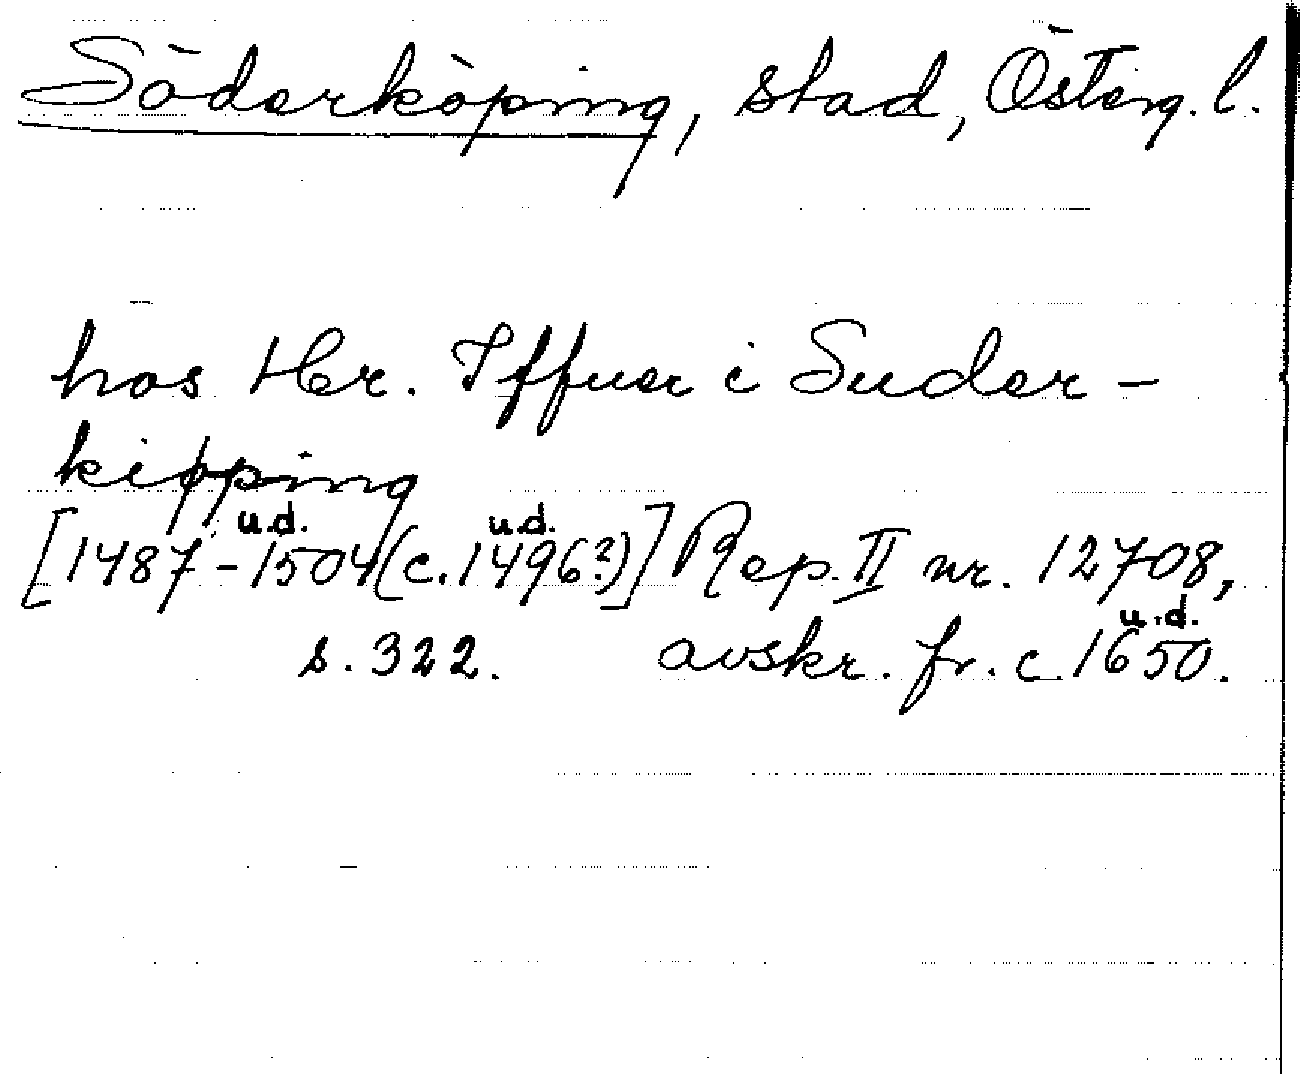 Söderköping, stad, Österg. l.
hos Her. Iffuer i Suder-
kipping
[1487 - 1504 u.d. (c. 1496? u.d.)] Rep. II nr. 12708,
s. 322. avskr. fr. c. 1650 u.d.